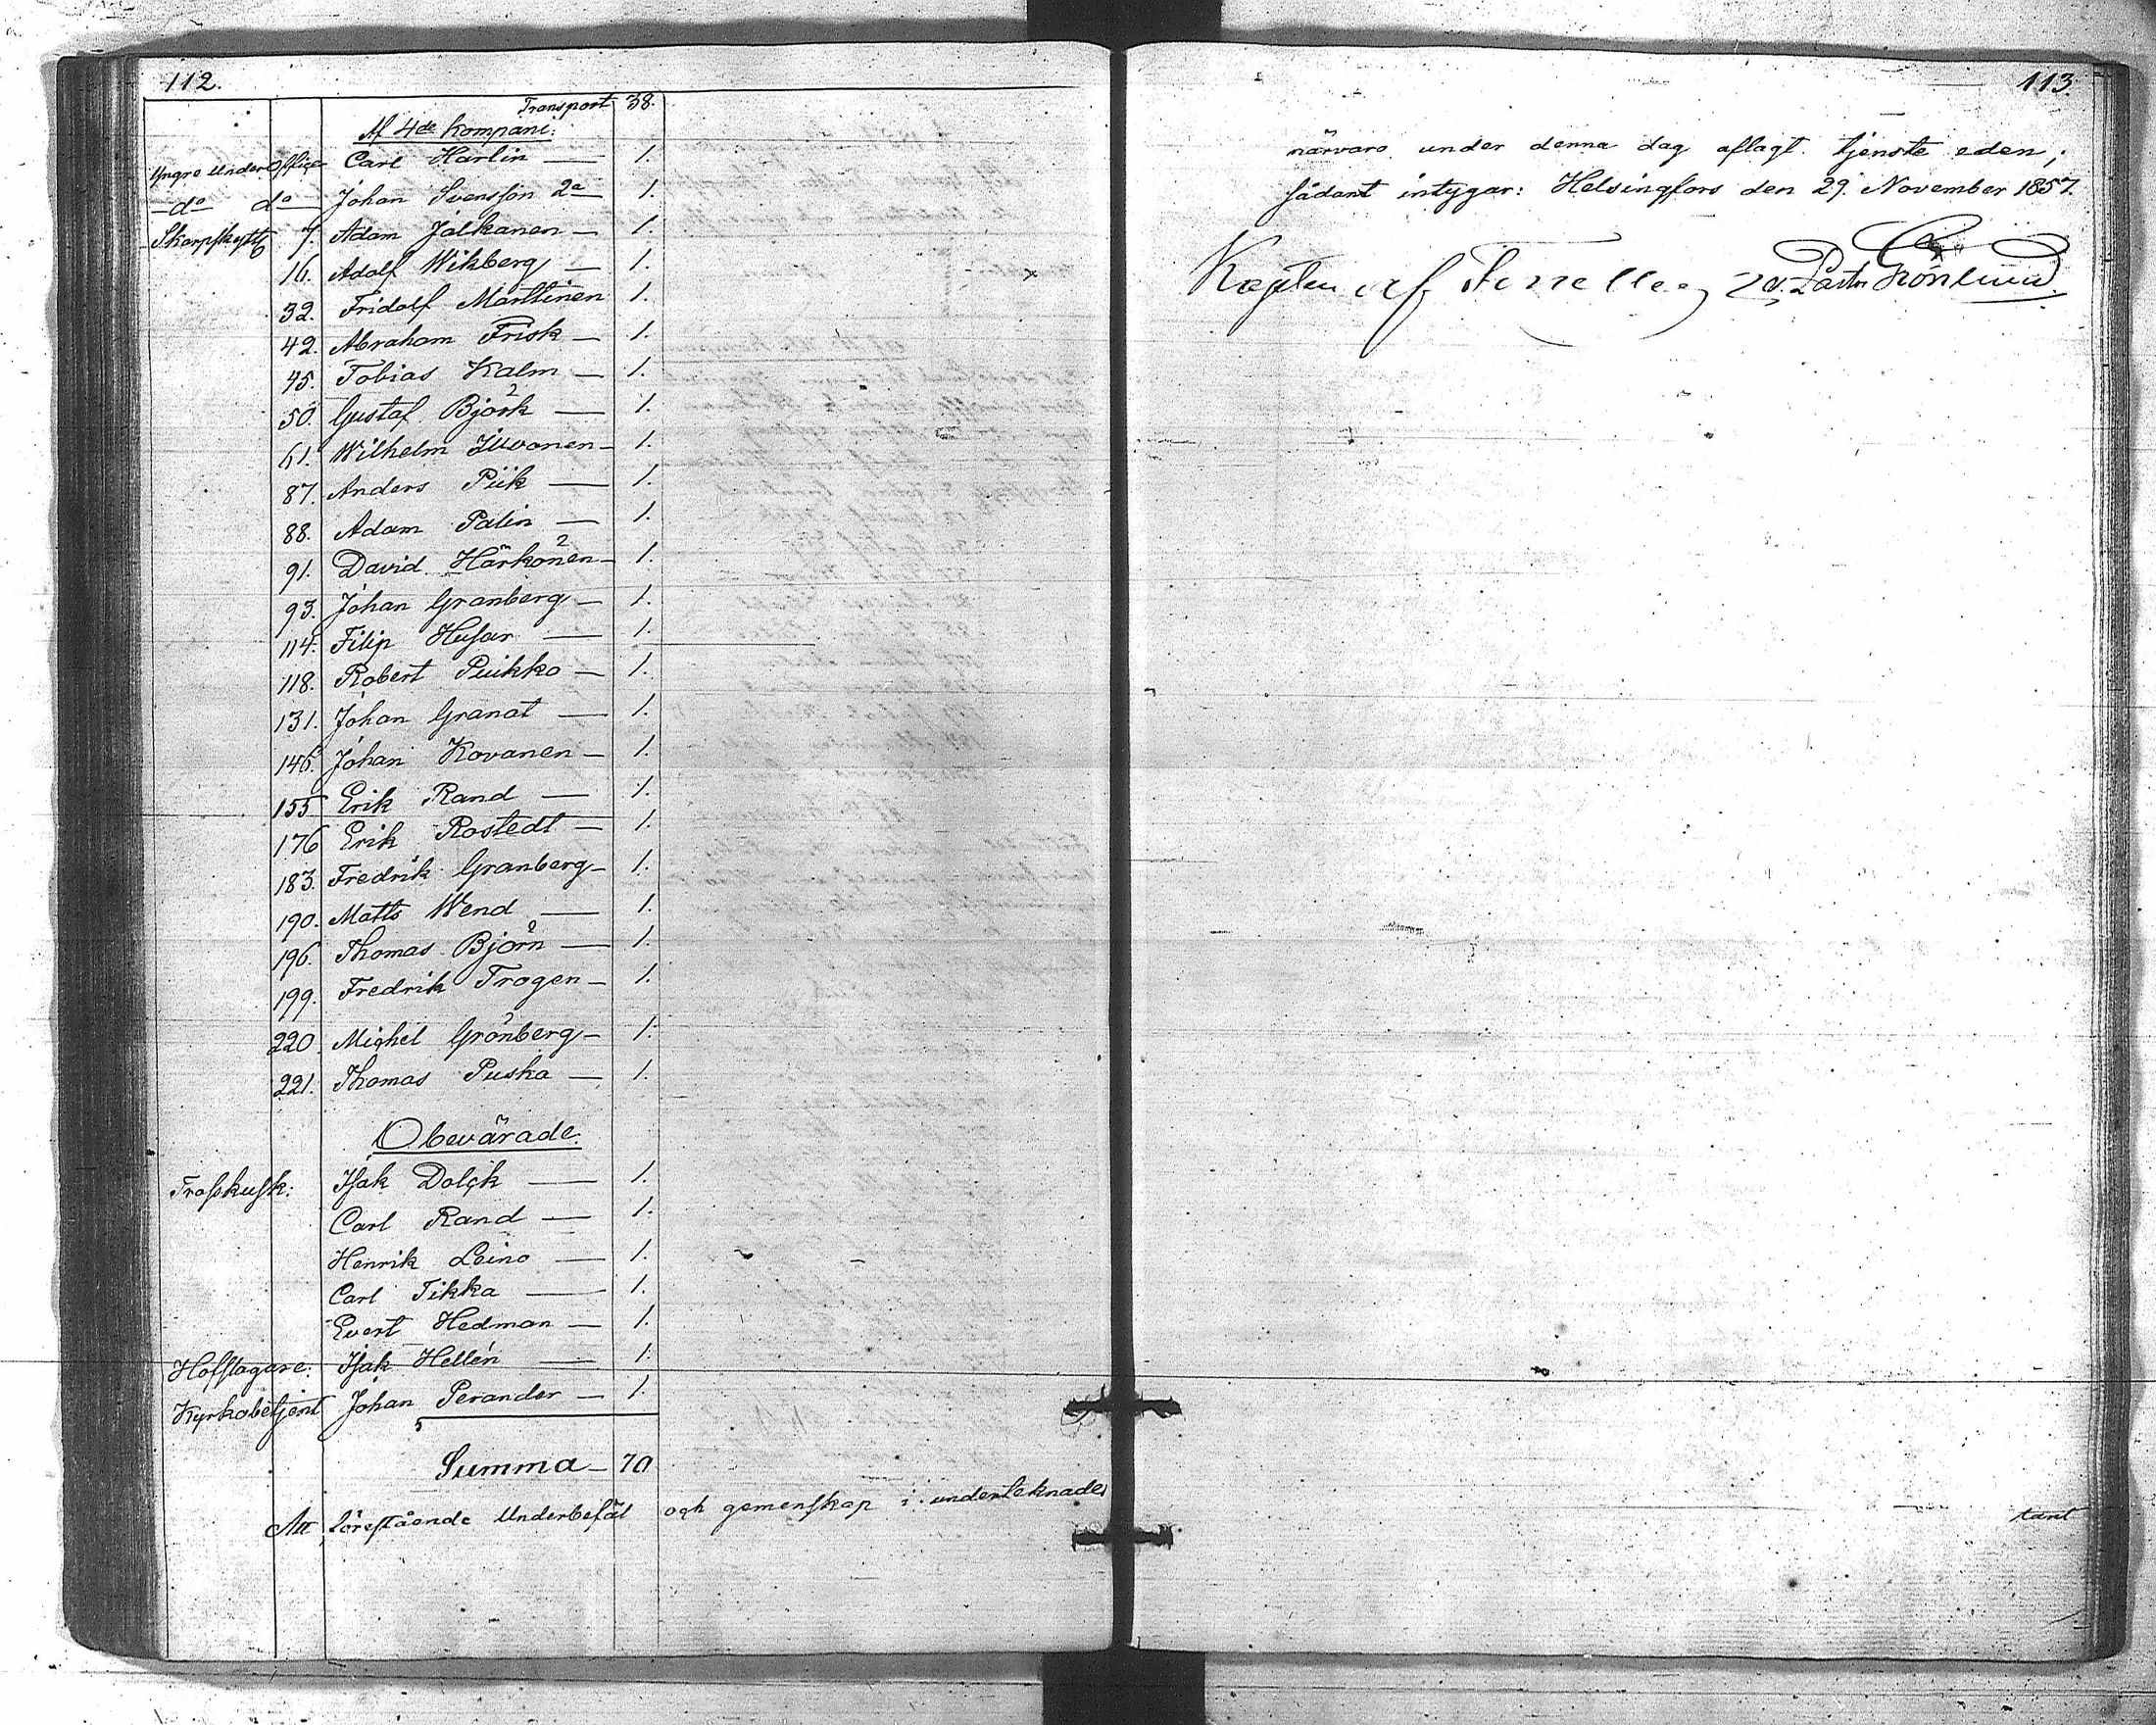 112.
Transport 38.
Af 4de Kompani:
Yngre Underofficr Carl Harlin — 1.
—do— do— Johan Svensson 2a 1.
Skarpskytt 7. Adam Jalkanen — 1.
16. Adolf Wikberg — 1.
32. Fridolf Marttinen 1.
42. Abraham Frisk — 1.
45. Tobias Kalm — 1.
50. Gustaf Björk — 1.
61. Wilhelm Ilvonen — 1.
87. Anders Piik — 1.
88. Adam Palin — 1.
91. David Härkönen — 1.
93. Johan Granberg — 1.
114. Filip Husar — 1.
118. Robert Puikko — 1.
131. Johan Granat — 1.
146. Johan Kovanen — 1.
155 Erik Rand — 1.
176 Erik Rostedt — 1.
183. Fredrik Granberg — 1.
190. Matts Wend — 1.
196. Thomas Björn — 1.
199. Fredrik Trogen — 1.
220. Mighel Grönberg — 1.
221. Thomas Puska — 1.
Obevärade.
Trosskusk: Isak Dolck — 1.
Carl Rand — 1.
Henrik Leino — 1.
Carl Tikka — 1.
Evert Hedman — 1.
Hofslagare: Isak Hellén — 1.
Kyrkobetjent Johan Perander — 1.
Summa — 70
Att förestående Underbefäl och gemenskap i undertecknades
113.
närvaro under denna dag aflagt tjenste eden,
sådant intygar: Helsingfors den 29. November 1857.
Kapten af Forselles v. Pastor Grönlund